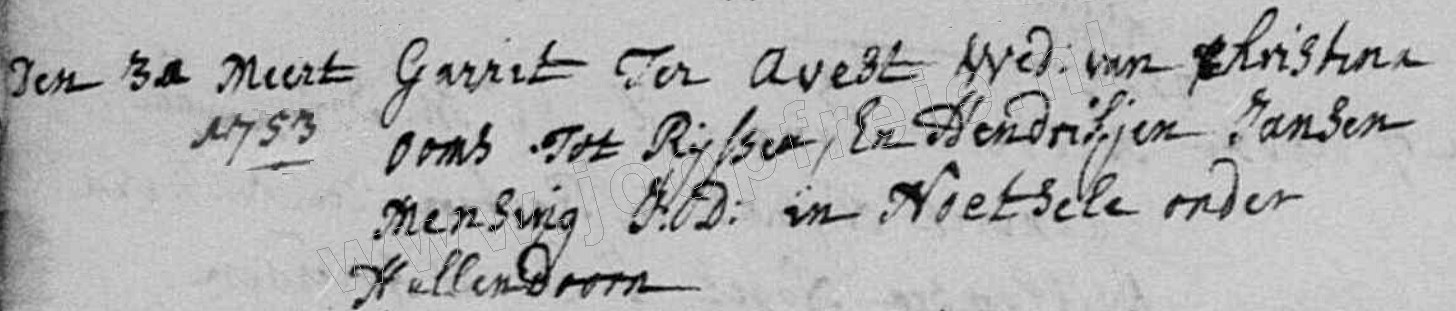 Den 3a Meert Garrit Ter Avest Wed: van Christina
1753
ooms Tot Rijssen, En Hendrikjen Jansen
Mensing J:D: in Noetsele onder
Hellendoorn
www.joopfreio.nl